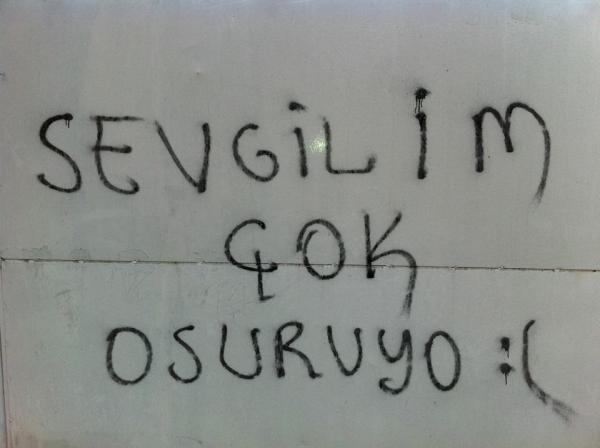 SEVGİLİM
ÇOK
OSURUYO :(